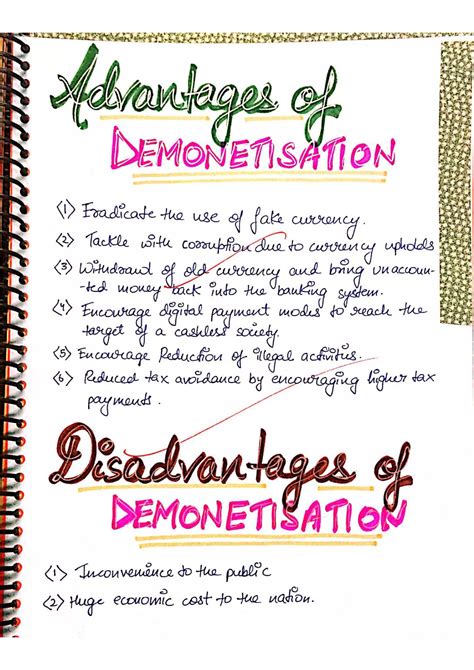 Advantages of
DEMONETISATION
<1> Eradicate the use of fake currency.
<2> Tackle with corruption due to currency upholds
<3> Withdrawl of old currency and bring unaccoun-
ted money back into the banking system.
<4> Encourage digital payment modes to reach the
target of a cashless society.
<5> Encourage Reduction of illegal activities.
<6> Reduced tax avoidance by encouraging higher tax
payments.
Disadvantages of
DEMONETISATION
<1> Inconvenience to the public
<2> Huge economic cost to the nation.